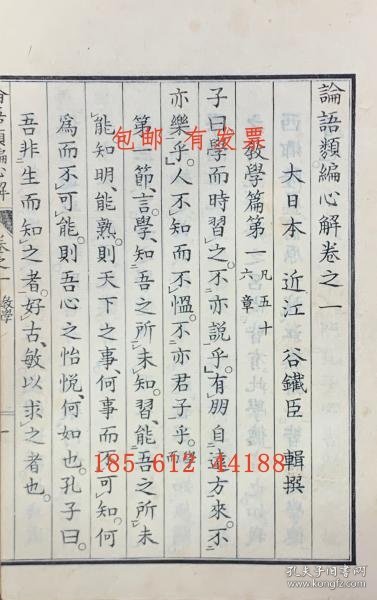 論語類編心解卷之一
大日本 近江 谷鐵臣 輯撰
教學篇第一 凡五十六章
子曰學而時習之。不亦說乎。有朋自遠方來。不
亦樂乎。人不知而不慍。不亦君子乎。學而
第一節、言學、知吾之所未知、習、能吾之所未
能、知明、能熟、則天下之事、何事而不可知、何
爲而不可能、則吾心之怡悅、何如也。孔子曰。
吾非生而知之者。好古、敏以求之者也。
卷之一 教學
一
包邮 有发票
185-612-44188
孔夫子旧书网